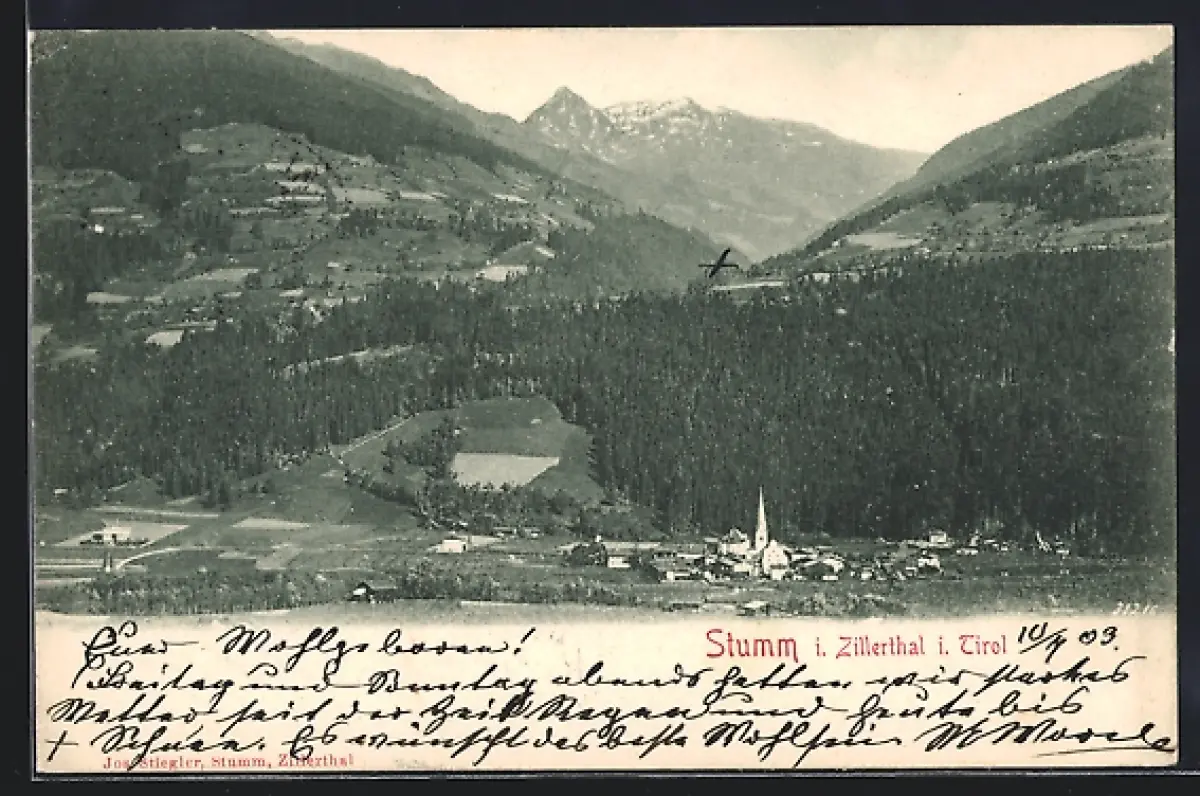 Euer Wohlgeboren!
Stumm i. Zillerthal i. Tirol 10/9 03.
Freitag und Sonntag abends hatten wir starkes
Wetter seit der Zeit Regen und heute bis
+ Schnee. Es wünscht des beste Wohlsein
Jos. Stiegler, Stumm, Zillerthal